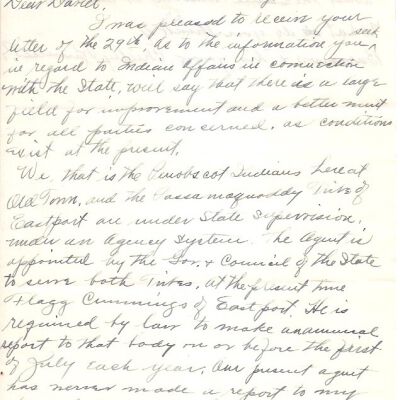 Dear David.
I was pleased to receive your
letter of the 29th, as to the information you seek
in regard to Indian Affairs in connection
with the State, will say that there is a large
field for improvement and a better
for all parties concerned, as conditions
exist at the present.
We, that is the Penobscot Indians here at
Old Town, and the Passamaquoddy Tribe of
Eastport are under State Supervision,
under an Agency System. The Agent is
appointed by the Gov. & Council of the State
to serve both Tribes, at the present time
Flagg Cummings of Eastport. He is
required by law to make an annual
report to that body on or before the first
of July each year. Our present agent
has never made a report to my